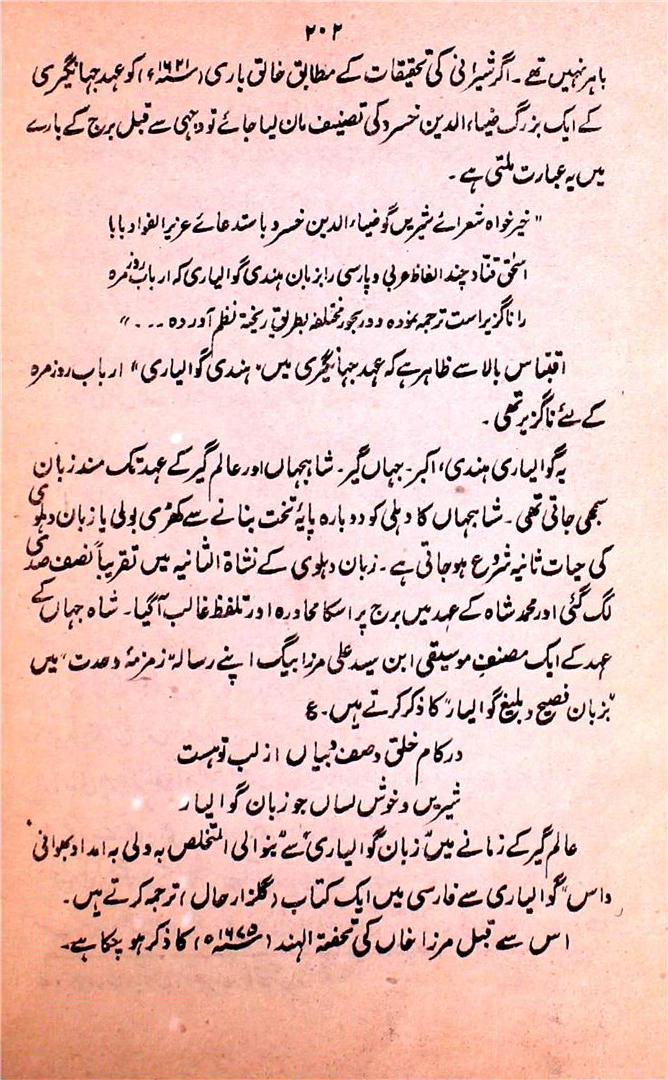 ۲۰۲
باہر نہیں تھے ۔ اگر شیرانی کی تحقیقات کے مطابق خالق باری (۱۶۲۱ء) کو عہد جہانگیری
کے ایک بزرگ ضیاء الدین خسرو کی تصنیف مان لیا جائے تو وجہی سے قبل برج کے بارے
میں یہ عبارت ملتی ہے ۔
" خیر خواہ شعرائے شیریں گو ضیاء الدین خسرو باستدعائے عزیز الفواد بابا
اسحٰق قنّاد چند الفاظ عربی و پارسی را بزبان ہندی گوالیاری کہ ارباب روز مرہ
را ناگزیر است ترجمہ نمودہ و در بحور مختلفہ بطریقِ ریختۂ نظم آوردہ ۔۔۔ "
اقتباس بالا سے ظاہر ہے کہ عہد جہانگیری میں " ہندی گوالیاری " ارباب روز مرہ
کے لئے ناگزیر تھی ۔
یہ گوالیاری ہندی، اکبر ۔ جہاں گیر ۔ شاہجہاں اور عالم گیر کے عہد تک مستند زبان
سمجھی جاتی تھی ۔ شاہجہاں کا دہلی کو دوبارہ پایۂ تخت بنانے سے کھڑی بولی یا زبان دہلوی
کی حیات ثانیہ شروع ہو جاتی ہے ۔ زبان دہلوی کے نشاۃ الثانیہ میں تقریباً نصف صدی
لگ گئی اور محمد شاہ کے عہد میں برج پر اسکا محاورہ اور تلفظ غالب آ گیا ۔ شاہ جہاں کے
عہد کے ایک مصنفِ موسیقی ابن سید علی مرزا بیگ اپنے رسالہ " زمزمۂ وحدت " میں
" بزبان فصیح و بلیغ گوالیار " کا ذکر کرتے ہیں ۔ ع
در کام خلق وصف بیاں از لب تو ہست
شیریں و خوش لساں جو زبان گوالیار
عالم گیر کے زمانے میں " زبان گوالیاری " سے " بنوالی المتخلص بہ ولی بہ امداد بھوانی
داس " گوالیاری سے فارسی میں ایک کتاب (گلزار حال) ترجمہ کرتے ہیں ۔
اس سے قبل مرزا خاں کی تحفۃ الہند (۱۶۷۵ء) کا ذکر ہو چکا ہے۔